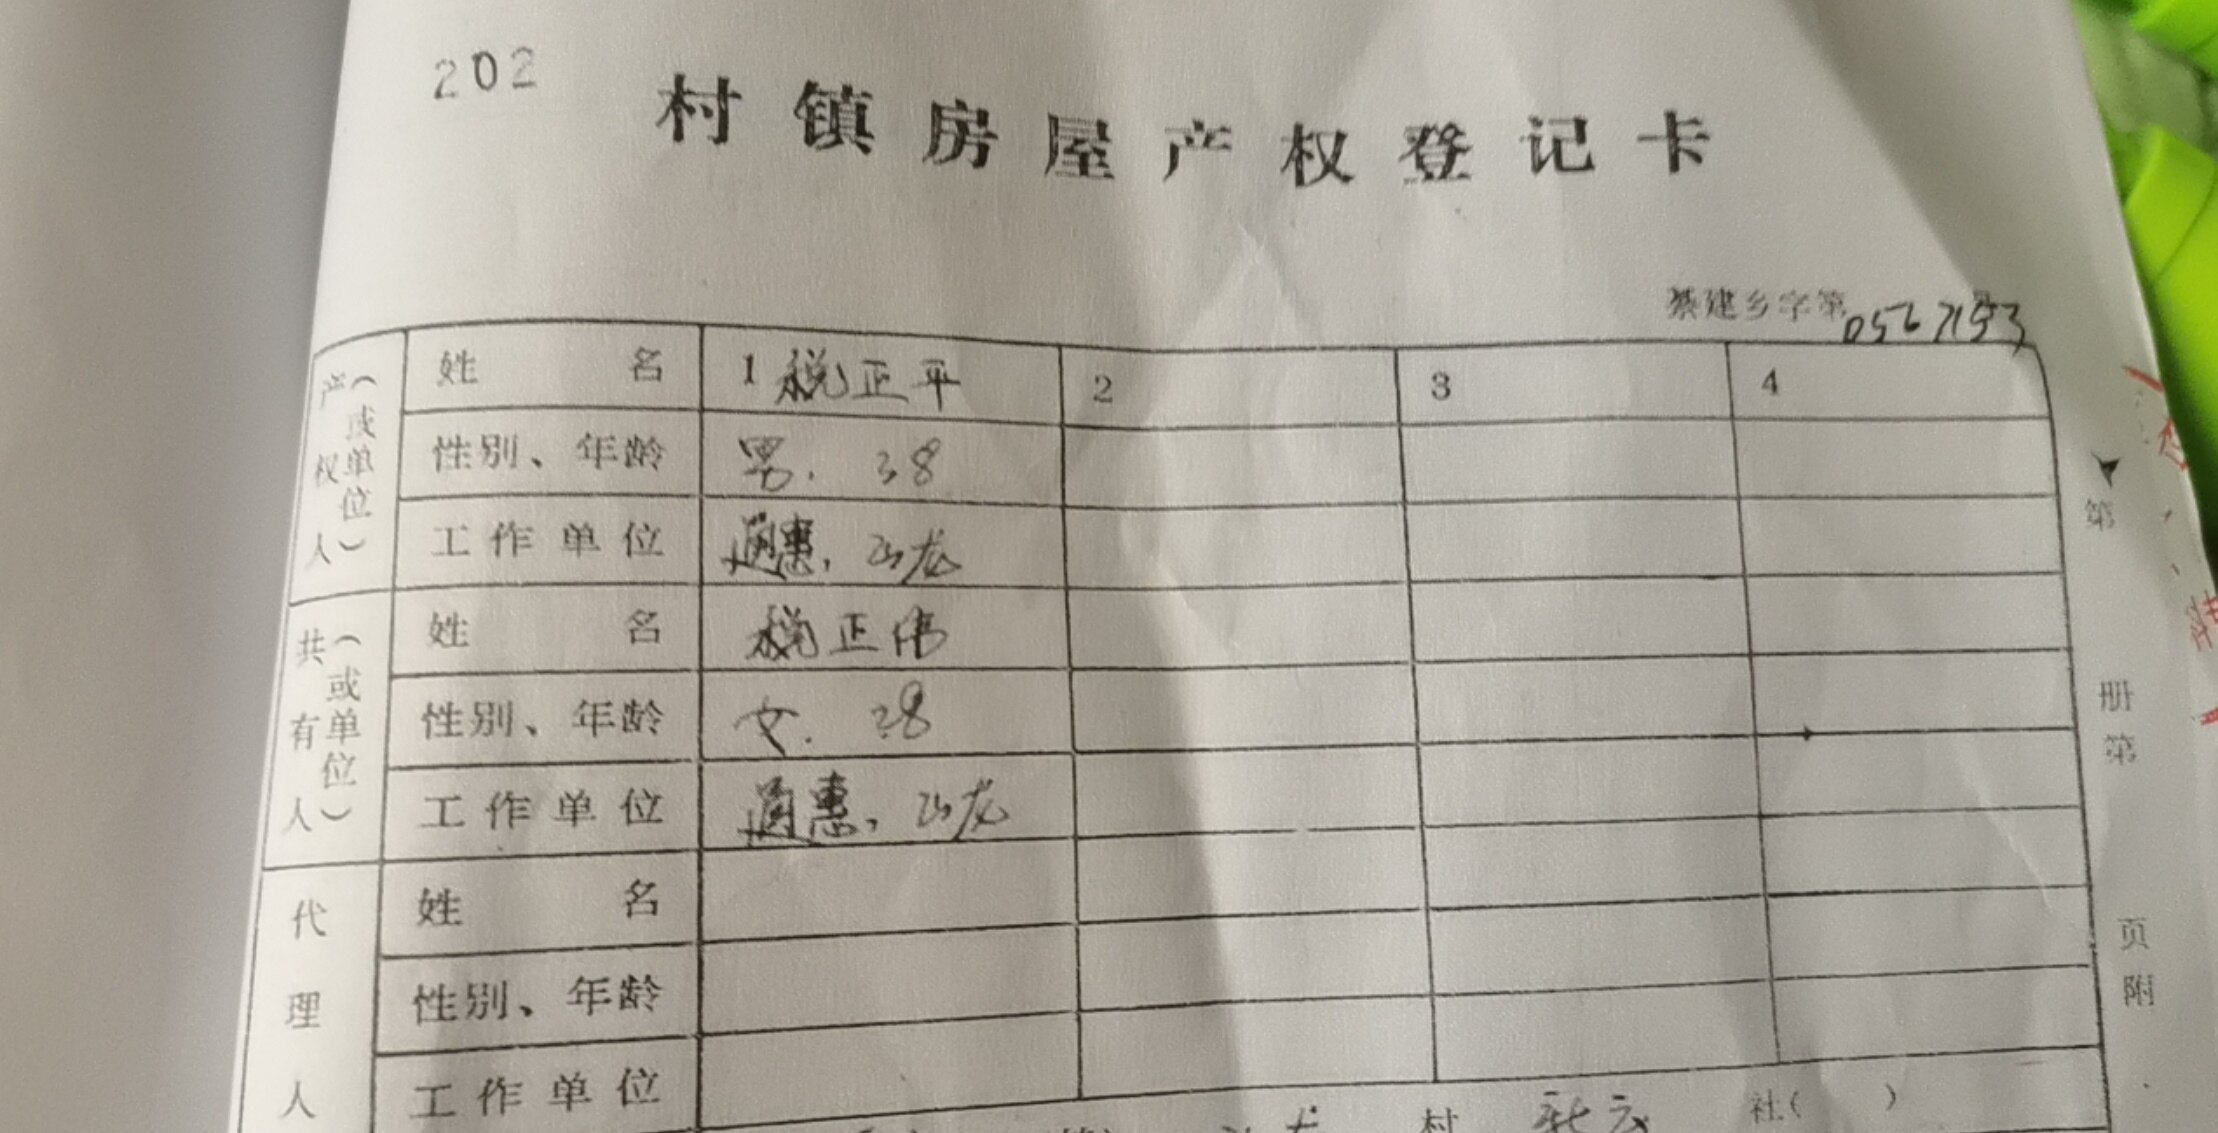 202
村镇房屋产权登记卡
綦建乡字第0567193
产权人(或单位)
姓名 1 税正平 2 3 4
性别、年龄 男. 38
工作单位 通惠,
共有人(或单位)
姓名 税正伟
性别、年龄 女. 28
工作单位 通惠,
代理人
姓名
性别、年龄
工作单位
村 社( )
第 册第 页附